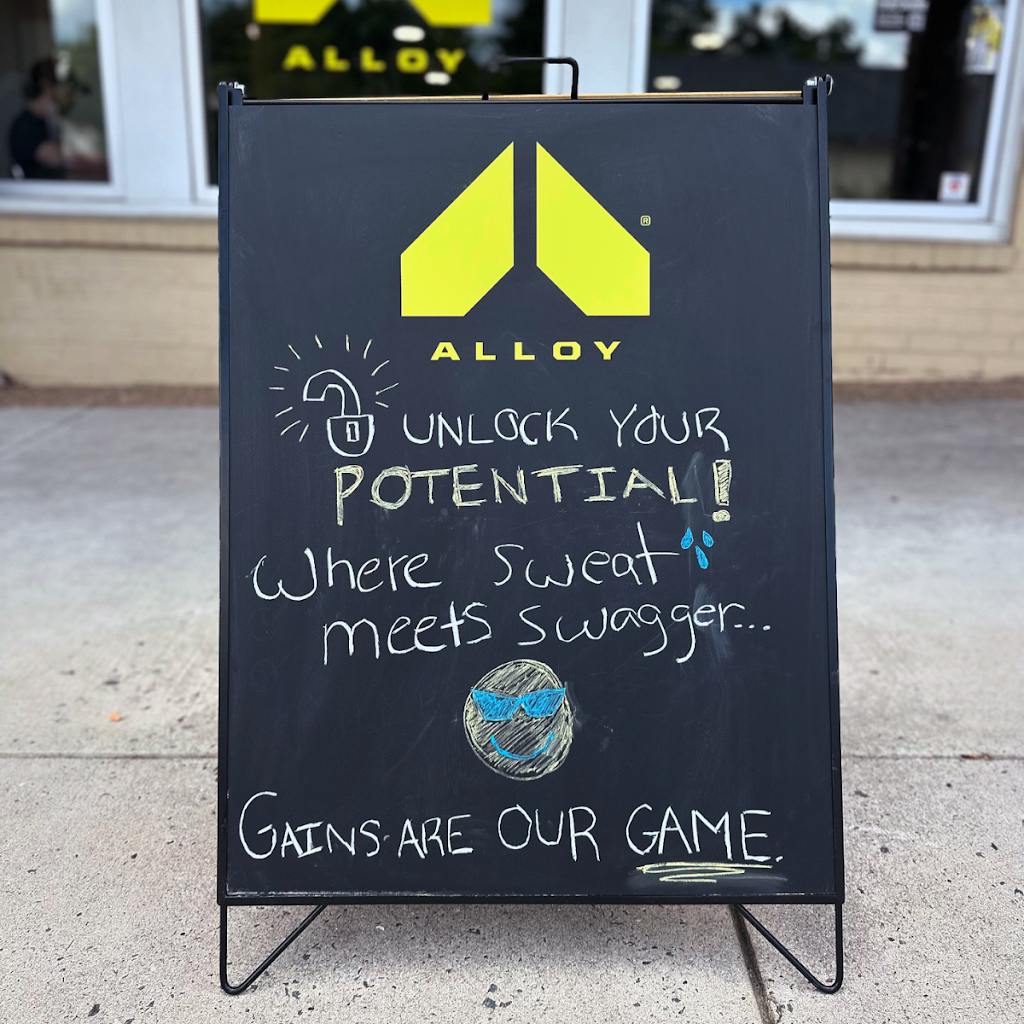 ALLOY
®
ALLOY
UNLOCK YOUR
POTENTIAL!
Where sweat
meets swagger...
GAINS ARE OUR GAME.